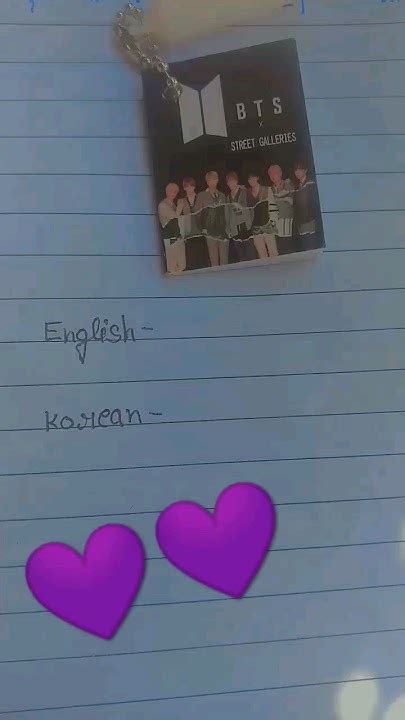 BTS
x
STREET GALLERIES
English-
Korean-